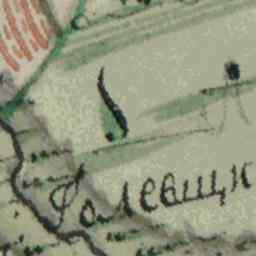 Фолевщк